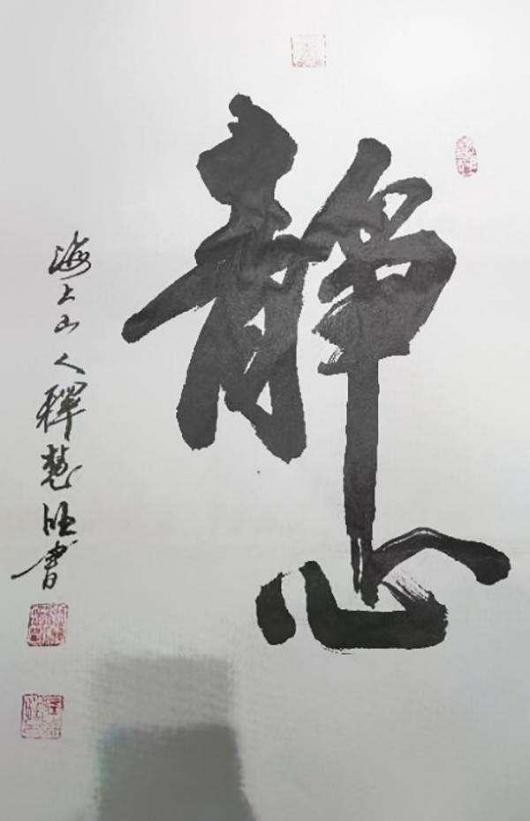 靜心
海上山人釋慧旺書